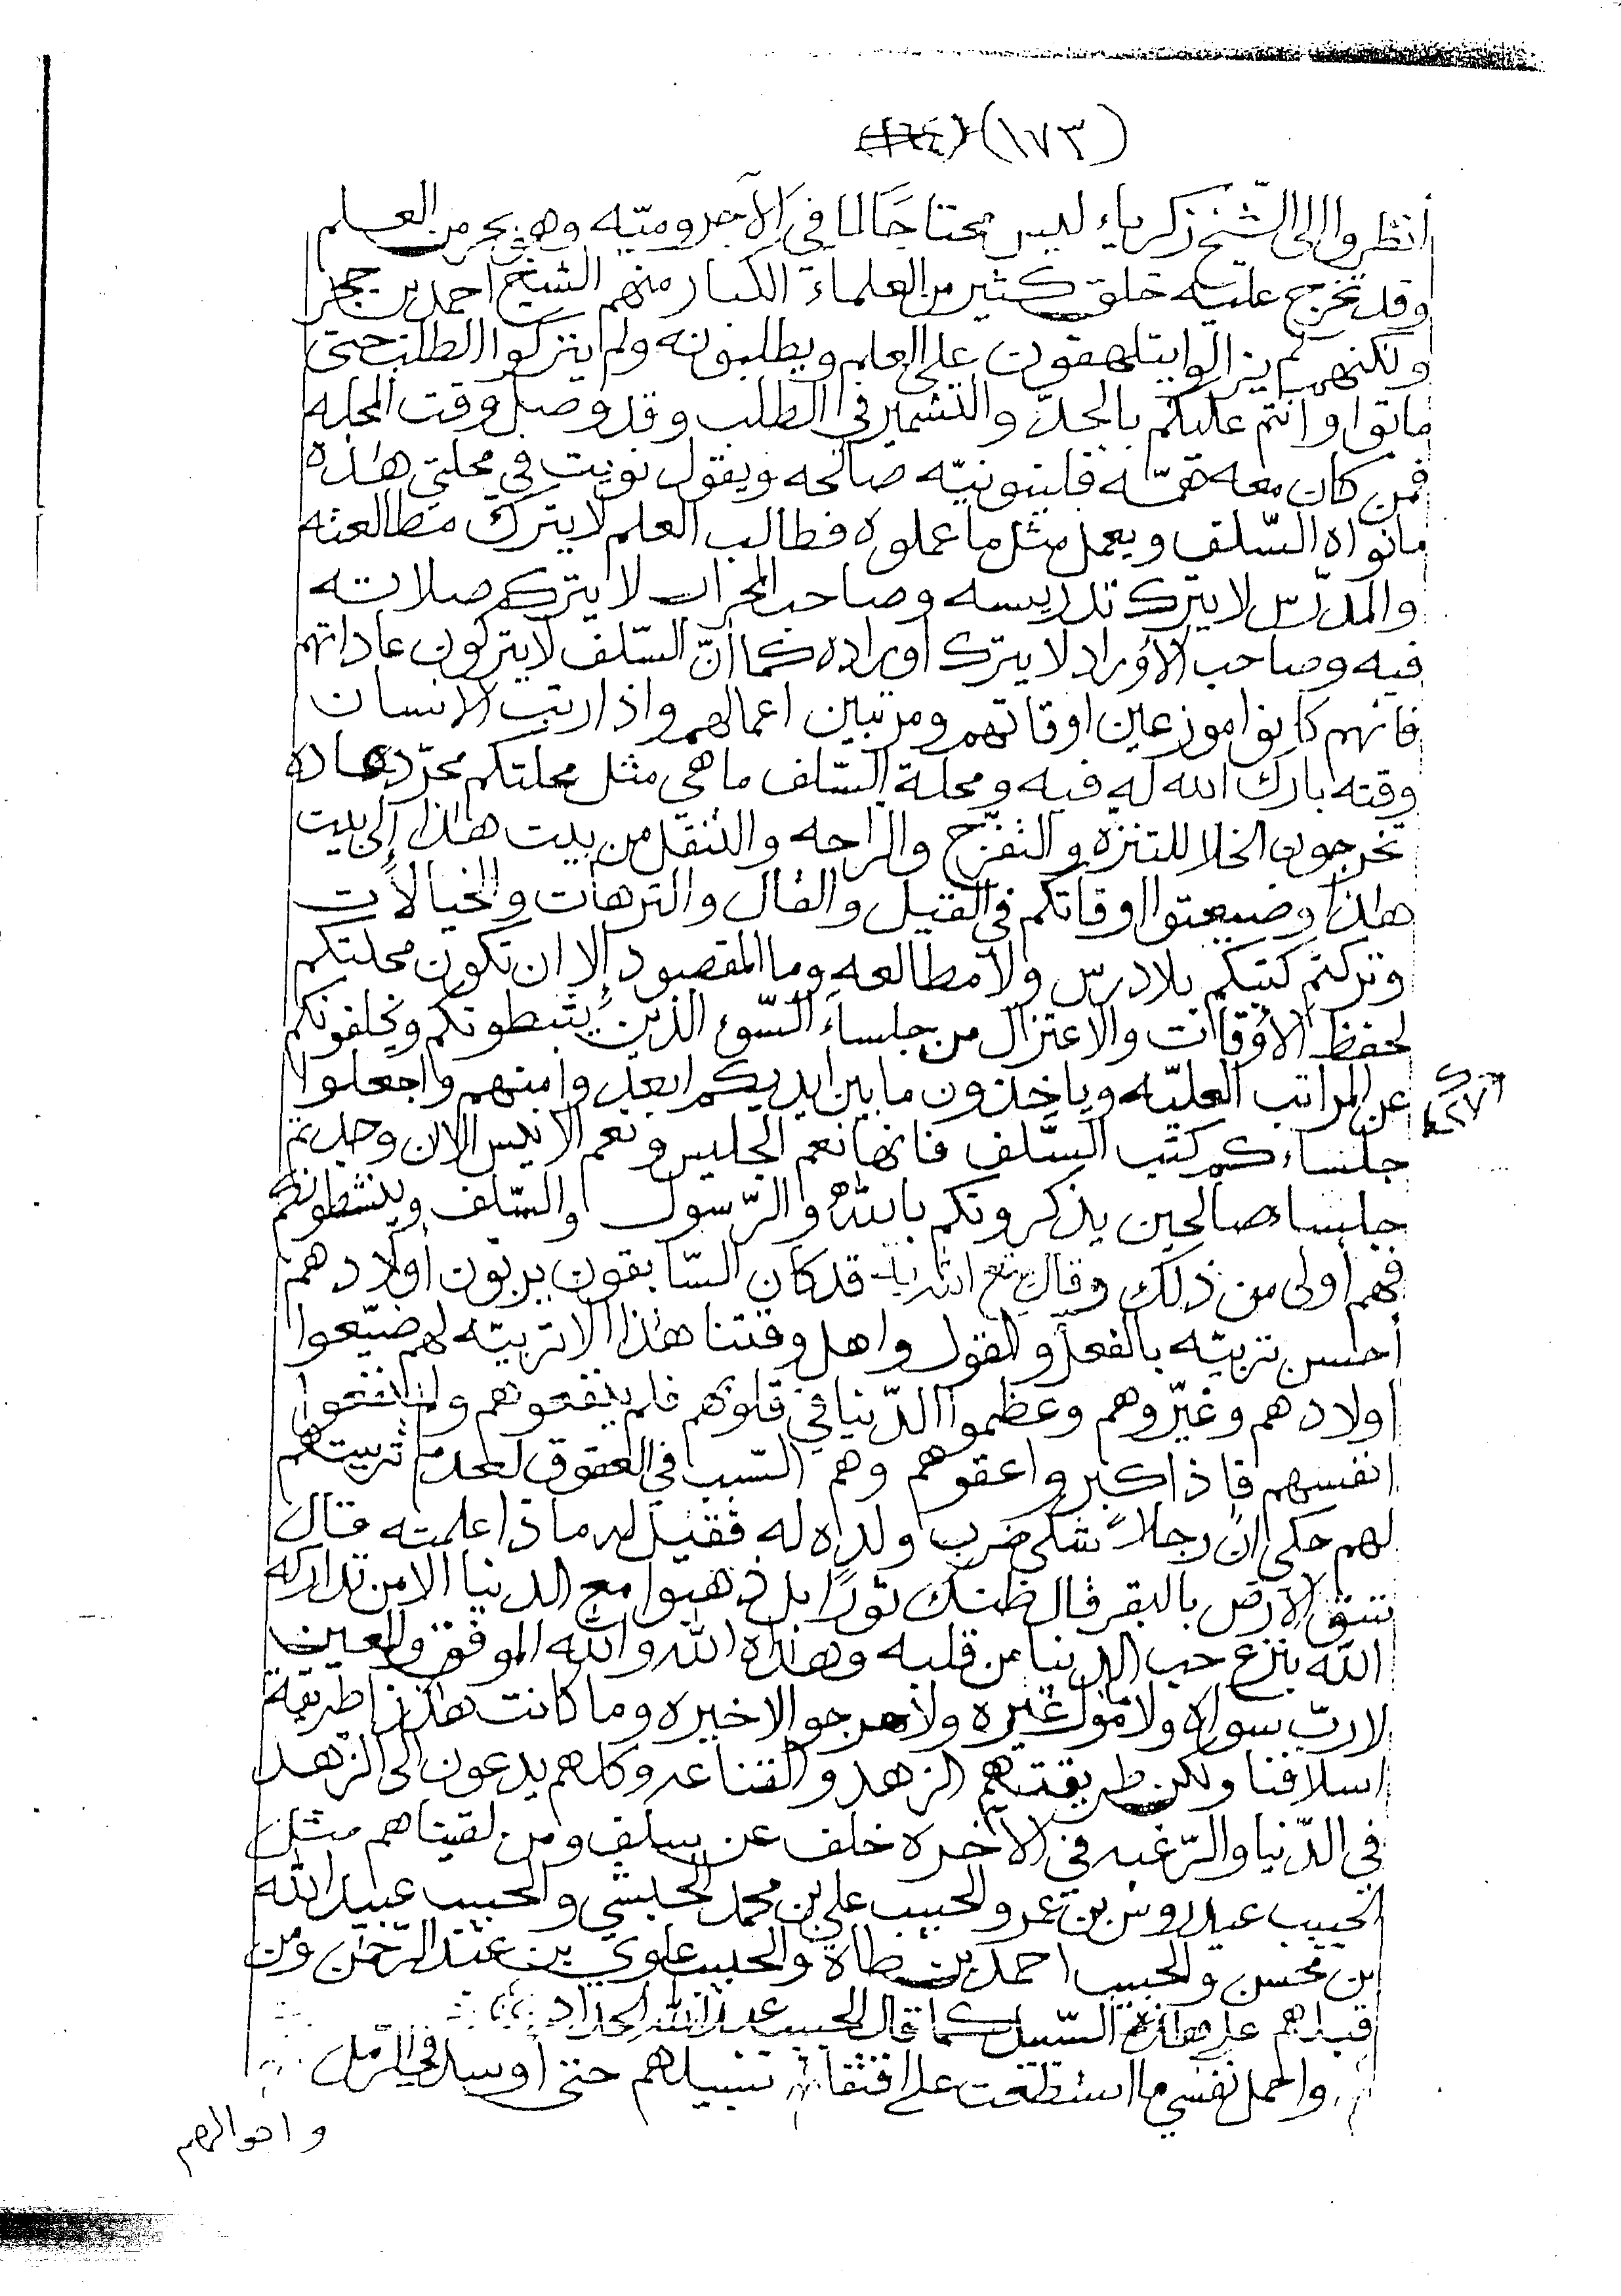 (١٧٣)
أنظروا إلى الشيخ زكرياء ليس محتاجًا لما في الآجروميّه وهو بحر من العلم
وقد تخرج عليه خلق كثير من العلماء الكبار منهم الشيخ احمد بن حجر
ولكنهم لم يزالوا يتلهفون على العلم ويطلبونه ولم يتركوا الطلب حتى
ماتوا وانتم عليكم بالجدّ والتشمير في الطلب وقد وصل وقت المحله
فمن كان معه همّه فلينو نيّه صالحه ويقول نويت في محلتي هذه
مانواه السّلف ويعمل مثل ما عملوه فطالب العلم لا يترك مطالعته
والمدرّس لا يترك تدريسه وصاحب المحراب لا يترك صلاته
فيه وصاحب الأوراد لا يترك اوراده كما أنّ السّلف لا يتركون عاداتهم
فانهم كانوا موزعين اوقاتهم ومرتبين اعمالهم واذا رتب الانسان
وقته بارك الله له فيه ومحلة السّلف ماهي مثل محلتكم مجرّد عاده
تخرجون الخلا للتنزه والتفرّج والراحه والتنقل من بيت هذا إلى بيت
هذا وضيعتوا اوقاتكم في القيل والقال والترهات والخيالات
وتركتم كتبكم بلا درس ولا مطالعه وما المقصود إلا ان تكون محلتكم
لحفظ الأوقات والاعتزال من جلساء السّوء الذين يثبطونكم ويخلفونكم
عن المراتب العليّه وياخذون ما بين ايديكم ابعدوا منهم واجعلوا
جلساءكم كتب السّلف فانها نعم الجليس ونعم الانيس الا ان وجدتم
جلساء صالحين يذكرونكم بالله والرّسول والسّلف وينشطونكم
فهم أولى من ذلك وقال قد كان السّابقون يربون أولادهم
أحسن تربيّه بالفعل والقول واهل وقتنا هذا لا تربيّه لهم ضيّعوا
أولادهم وغيّروهم وعظموا الدّنيا في قلوبهم فلم ينفعوهم ولم ينفعوا
انفسهم فاذا كبروا عقوهم وهم السّبب في العقوق لعدم تربيتهم
لهم حكي انّ رجلاً شكى ضرب ولده له فقيل له ماذا علمته قال
شق الأرض بالبقر قال ظنك ثورًا بل ذهبوا مع الدنيا الا من تداركه
الله بنزع حب الدنيا من قلبه وهداه الله والله الموفق والمعين
لا ربّ سواه ولا مول غيره ولا مرجو الا خيره وما كانت هذا طريقة
اسلافنا ولكن طريقتهم الزهد والقناعه وكلهم يدعون الى الزهد
في الدّنيا والرّغبه في الآخره خلف عن سلف ومن لقيناهم مثل
الحبيب عيدروس بن عمر والحبيب علي بن محمد الحبشي والحبيب عبيد الله
ابن محسن والحبيب احمد بن طاه والحبيب علوي بن عبد الرّحمن ومن
قبلهم على هذه السّبل كما قال الحبيب عبد الله الحداد
واحمل نفسي ما استطعت على اقتفا سبيلهم حتى أوسد في الرّمل
واحوالهم